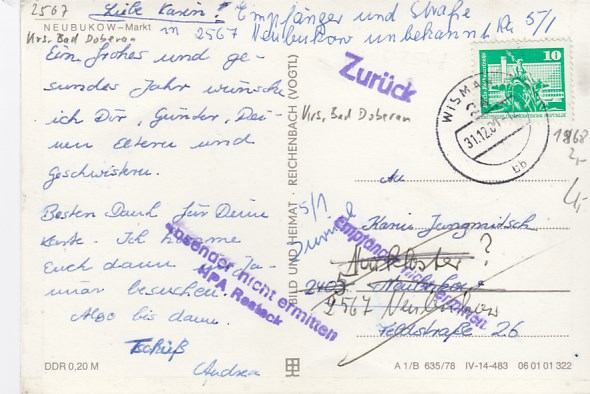 2567 Liebe Karin! Empfänger und Straße
NEUBUKOW – Markt in 2567 Neubukow unbekannt 5/1
Krs. Bad Doberan
Ein frohes und ge-
sundes Jahr wünsche
ich Dir, Günder, Dei-
nen Eltern und
Geschwistern.
Besten Dank für Deine
Karte. Ich komme
Euch dann im Ja-
nuar besuchen.
Also bis dann.
Tschüß
Andrea
DDR 0,20 M
Zurück
Krs. Bad Doberan
BILD UND HEIMAT · REICHENBACH (VOGTL)
WISMAR
31.12.81
bb
10
DEUTSCHE DEMOKRATISCHE REPUBLIK
An
5/1
Zurück
Karin Jungnitsch
Neukloster ?
2567 Neubukow
Feldstraße 26
Absender nicht ermitteln
HPA Rostock
Empfänger nicht ermitteln
A 1/B 635/78 IV-14-483 06 01 01 322